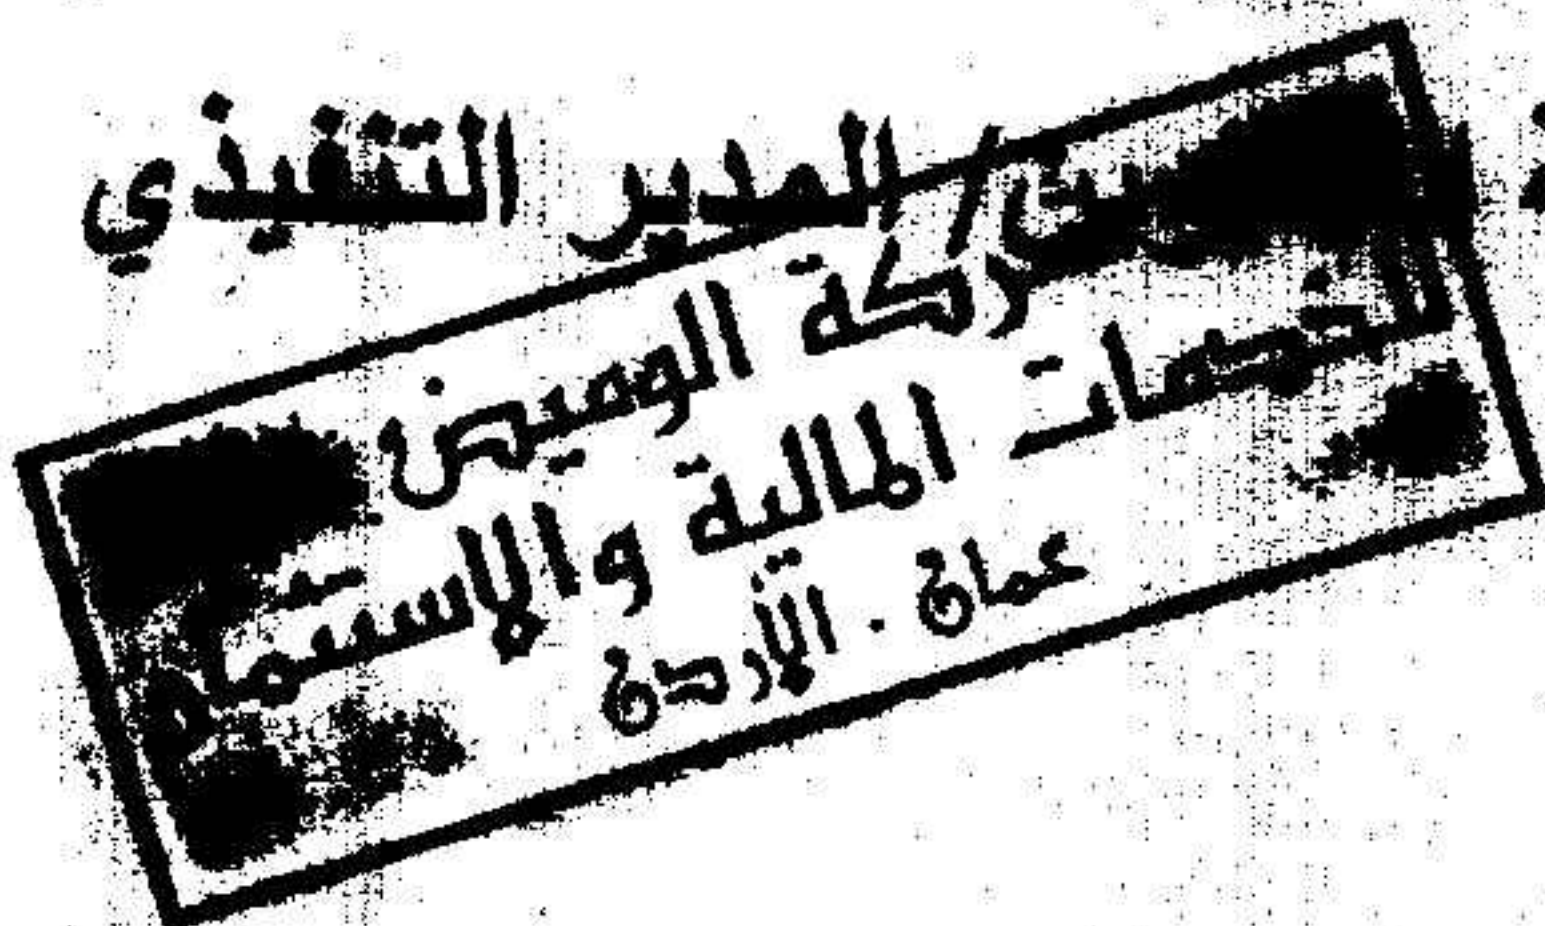 المدير التنفيذي
شركة الوميض
للخدمات المالية والإستثمار
عمان . الأردن